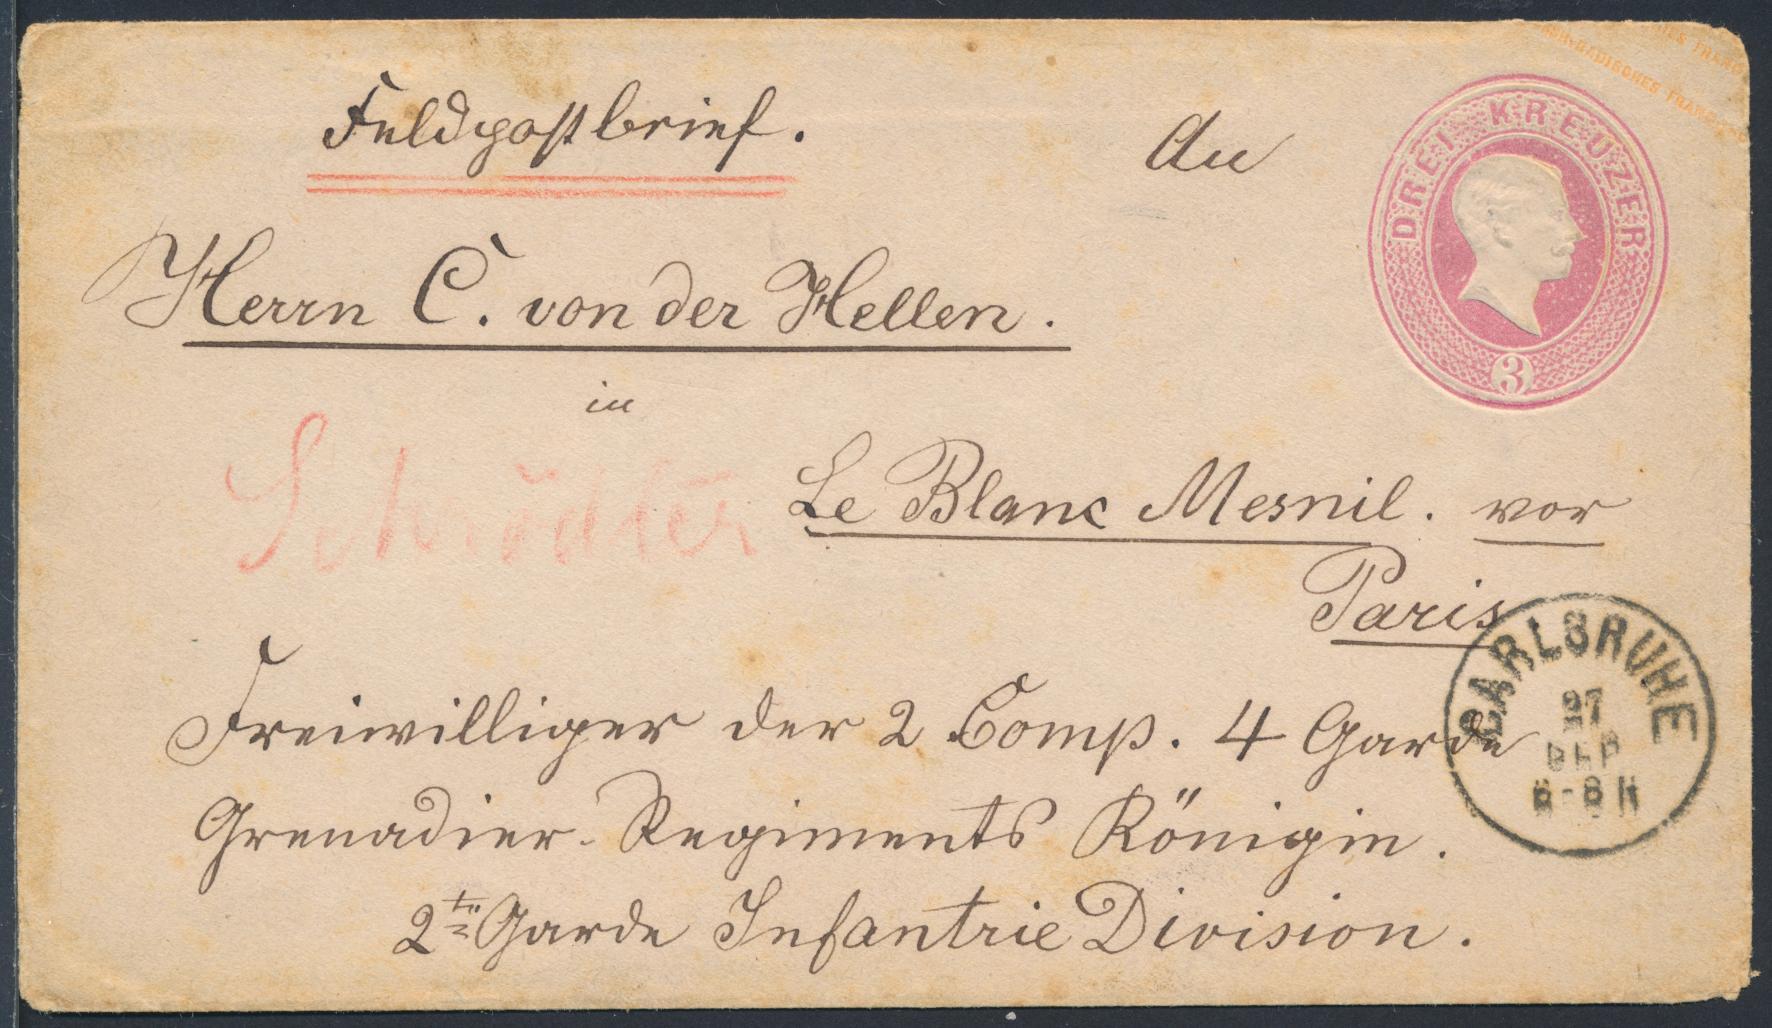 Feldpostbrief.
An
DREI KREUZER
3
Herrn C. von der Hellen.
in
Le Blanc Mesnil. vor
Paris
Schrödter
CARLSRUHE
27
6-8 N
Freiwilliger der 2 Comp. 4 Garde
Grenadier-Regiments Königin.
2te Garde Infantrie Division.